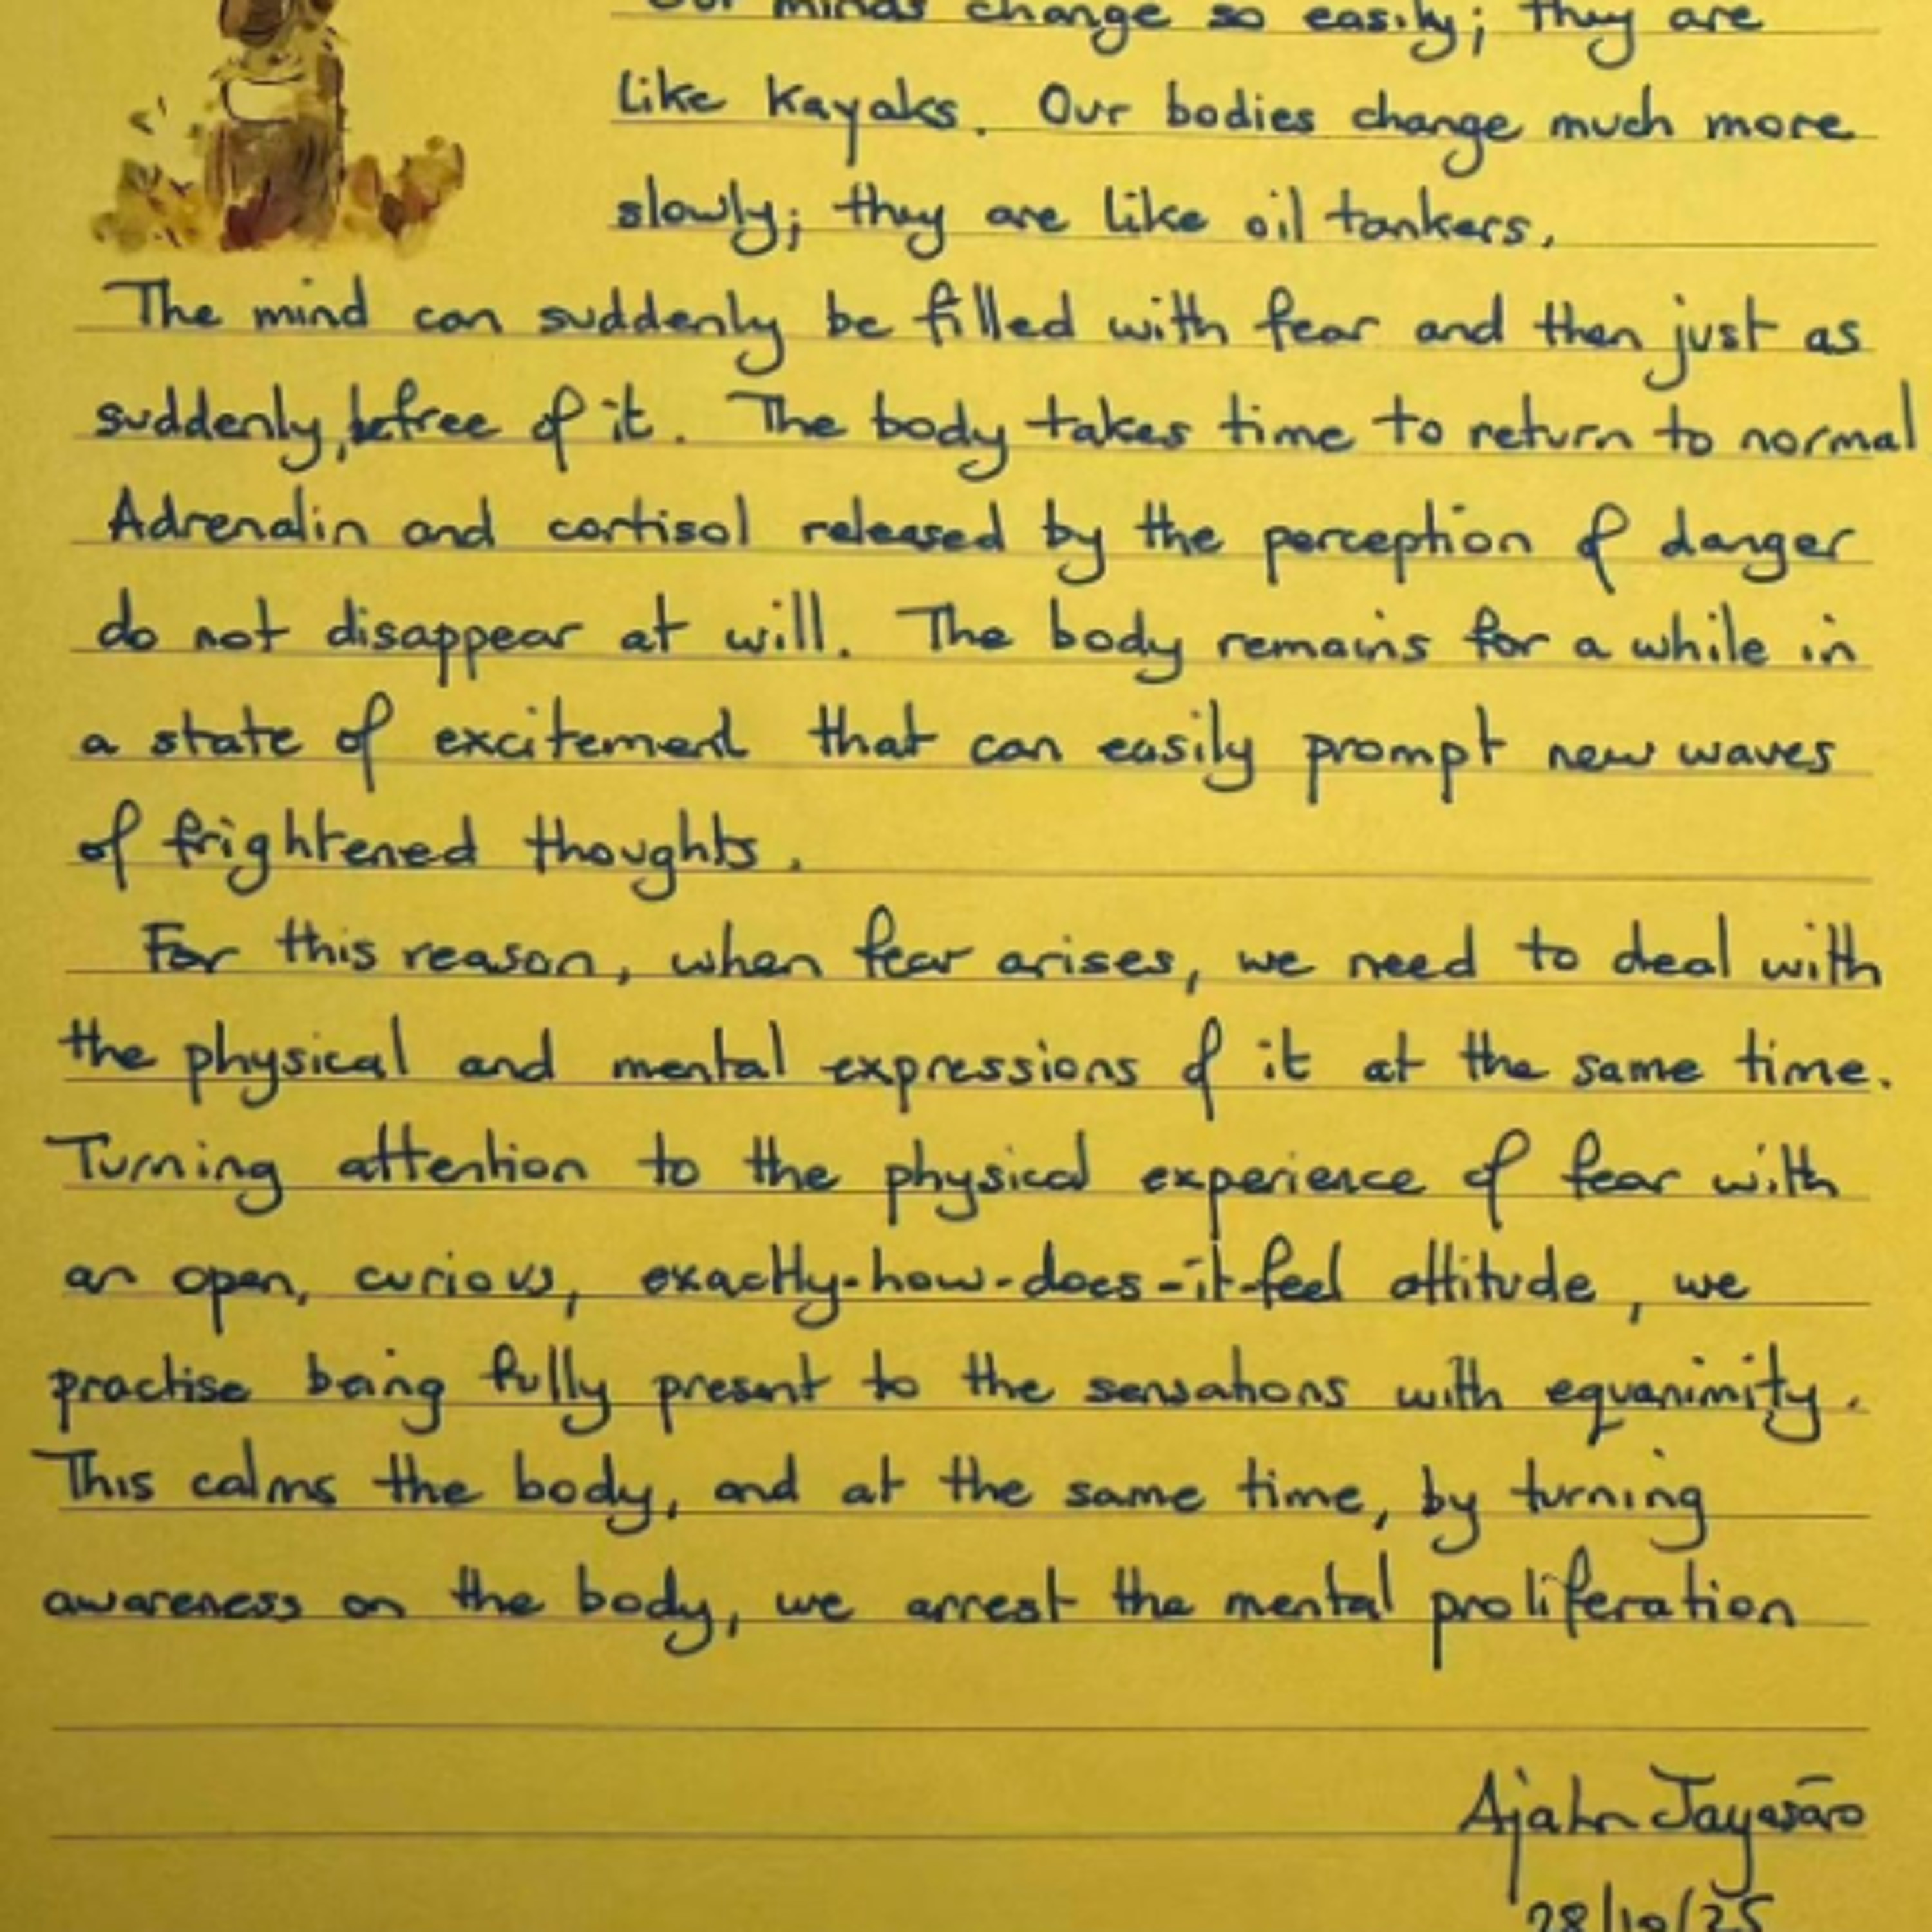 Our minds change so easily; they are
like kayaks. Our bodies change much more
slowly; they are like oil tankers.
The mind can suddenly be filled with fear and then just as
suddenly, be free of it. The body takes time to return to normal
Adrenalin and cortisol released by the perception of danger
do not disappear at will. The body remains for a while in
a state of excitement that can easily prompt new waves
of frightened thoughts.
For this reason, when fear arises, we need to deal with
the physical and mental expressions of it at the same time.
Turning attention to the physical experience of fear with
an open, curious, exactly-how-does-it-feel attitude, we
practise being fully present to the sensations with equanimity.
This calms the body, and at the same time, by turning
awareness on the body, we arrest the mental proliferation
Ajahn Jayasāro